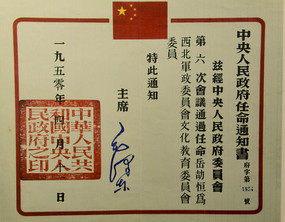 中央人民政府任命通知書
府字第1874號
茲經中央人民政府委員會
第六次會議通過任命岳劼恒爲
西北軍政委員會文化教育委員會
委員
特此通知
主席
毛澤東
一九五〇年四月 日
中華人民共
和國中央人
民政府之印